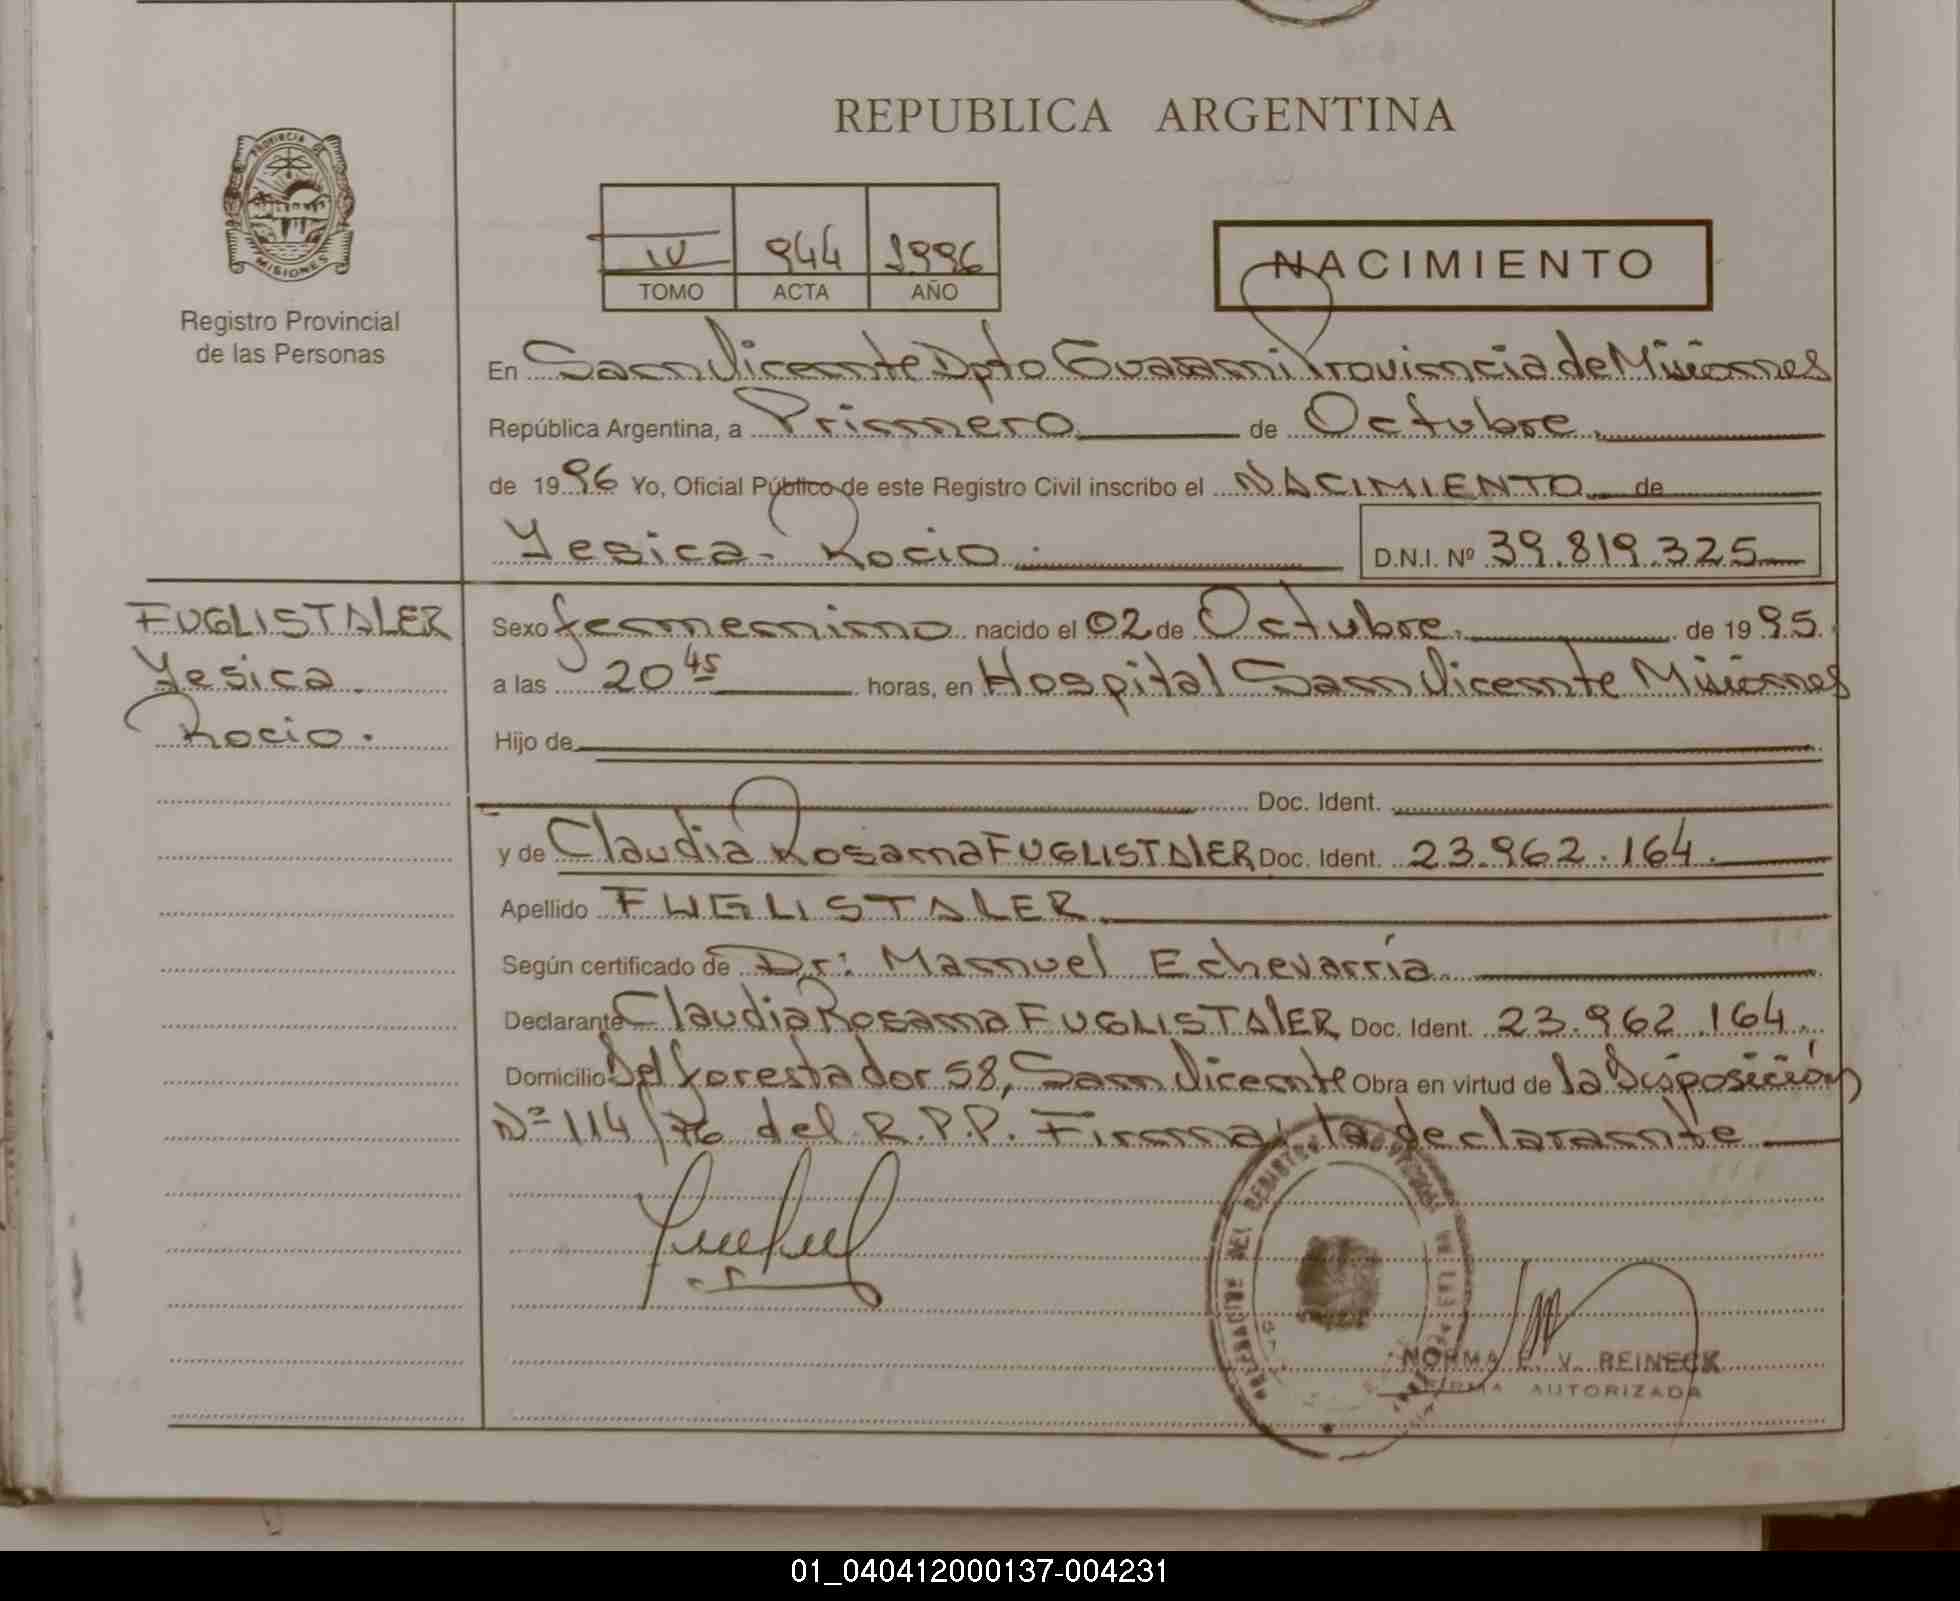 REPUBLICA ARGENTINA
PROVINCIA DE
MISIONES
Registro Provincial
de las Personas
IV 944 1996
TOMO ACTA AÑO
NACIMIENTO
En San Vicente Dpto Guarani Provincia de Misiones
República Argentina, a Primero de Octubre.
de 1996 Yo, Oficial Público de este Registro Civil inscribo el NACIMIENTO de
Yesica Rocio D.N.I. Nº 39.819.325
FUGLISTALER
Yesica
Rocio.
Sexo femenino nacido el 02 de Octubre. de 1995.
a las 20 45 horas, en Hospital San Vicente Misiones
Hijo de
Doc. Ident.
y de Claudia Rosana FUGLISTALER Doc. Ident. 23.962.164.
Apellido FUGLISTALER.
Según certificado de Dr: Manuel Echevarría
Declarante Claudia Rosana FUGLISTALER Doc. Ident. 23.962.164.
Domicilio Del forestador 58, San Vicente Obra en virtud de la Disposición
Nº 114/76 del R.P.P. Firma: la declarante
NORMA E. V. REINECK
FIRMA AUTORIZADA
01_040412000137-004231